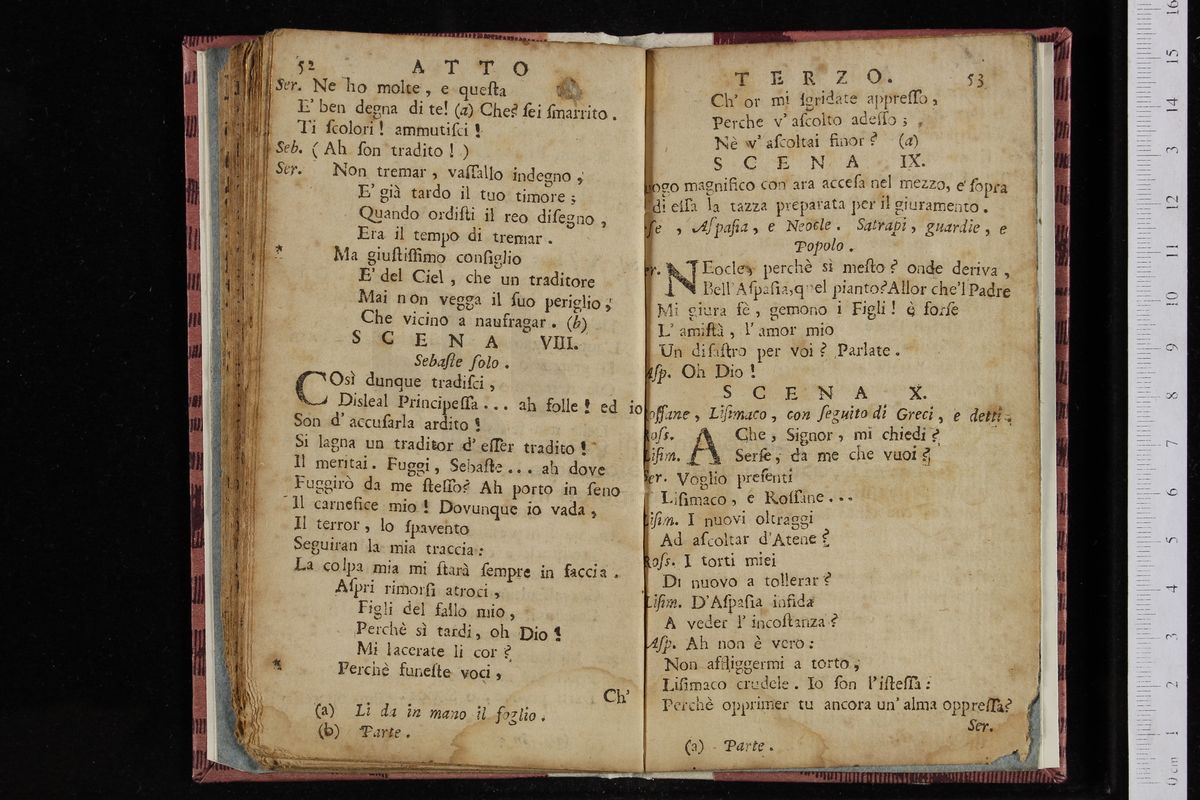 52 ATTO
Ser. Ne ho molte, e queſta
E' ben degna di te! (a) Che? ſei ſmarrito.
Ti ſcolori! ammutiſci!
Seb. (Ah ſon tradito!)
Ser. Non tremar, vaſſallo indegno;
E' già tardo il tuo timore;
Quando ordiſti il reo diſegno,
Era il tempo di tremar.
* Ma giuſtiſſimo conſiglio
E' del Ciel, che un traditore
Mai non vegga il ſuo periglio,
Che vicino a naufragar. (b)
SCENA VIII.
Sebaſte ſolo.
COsì dunque tradiſci,
Disleal Principeſſa... ah folle! ed io
Son d'accuſarla ardito!
Si lagna un traditor d'eſſer tradito!
Il meritai. Fuggi, Sebaſte... ah dove
Fuggirò da me ſteſſo? Ah porto in ſeno
Il carnefice mio! Dovunque io vada,
Il terror, lo ſpavento
Seguiran la mia traccia:
La colpa mia mi ſtarà ſempre in faccia.
Aſpri rimorſi atroci,
Figli del fallo mio,
Perchè sì tardi, oh Dio!
Mi lacerate il cor?
* Perchè funeſte voci,
Ch'
(a) Li da in mano il foglio.
(b) Parte.
TERZO. 53
Ch' or mi ſgridate appreſſo,
Perche v'aſcolto adeſſo;
Nè v'aſcoltai finor? (a)
SCENA IX.
uogo magnifico con ara acceſa nel mezzo, e ſopra
di eſſa la tazza preparata per il giuramento.
ſe, Aſpaſia, e Neocle. Satrapi, guardie, e
Popolo.
er. NEocle, perchè sì meſto? onde deriva,
Bell'Aſpaſia, quel pianto? Allor che'l Padre
Mi giura fè, gemono i Figli! è forſe
L'amiſtà, l'amor mio
Un diſaſtro per voi? Parlate.
Aſp. Oh Dio!
SCENA X.
Roſſane, Liſimaco, con ſeguito di Greci, e detti.
Roſs. A Che, Signor, mi chiedi?
Liſim. Serſe, da me che vuoi?
Ser. Voglio preſenti
Liſimaco, e Roſſane...
Liſim. I nuovi oltraggi
Ad aſcoltar d'Atene?
Roſs. I torti miei
Di nuovo a tollerar?
Liſim. D'Aſpaſia infida
A veder l'incoſtanza?
Aſp. Ah non è vero:
Non affliggermi a torto,
Liſimaco crudele. Io ſon l'iſteſſa:
Perchè opprimer tu ancora un'alma oppreſſa?
Ser.
(a) Parte.